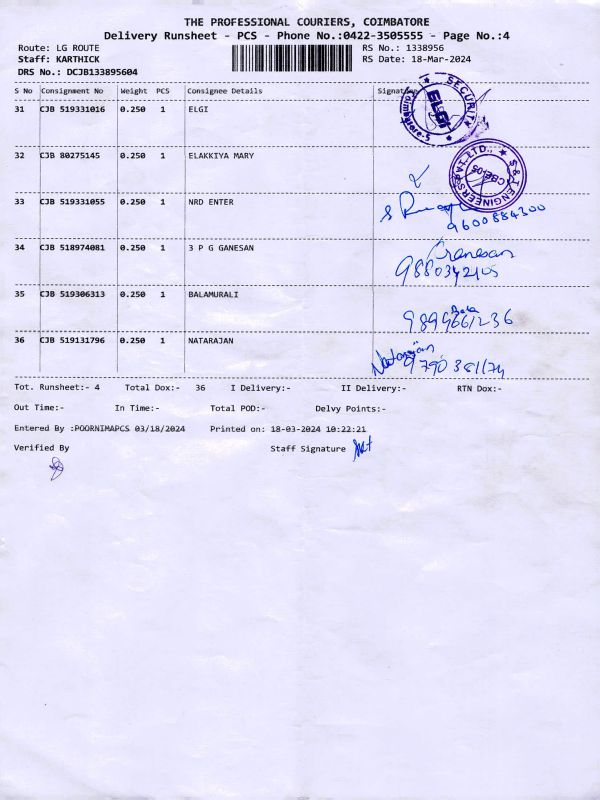 THE PROFESSIONAL COURIERS, COIMBATORE
Delivery Runsheet - PCS - Phone No.:0422-3505555 - Page No.:4
Route: LG ROUTE RS No.: 1338956
Staff: KARTHICK RS Date: 18-Mar-2024
DRS No.: DCJB133895604
S No Consignment No Weight PCS Consignee Details Signature
31 CJB 519331016 0.250 1 ELGI
SECURITY ELGI
32 CJB 80275145 0.250 1 ELAKKIYA MARY
S&T ENGINEERS PVT LTD., CBE-05
33 CJB 519331055 0.250 1 NRD ENTER
9600884300
34 CJB 518974081 0.250 1 3 P G GANESAN
Ganesan
9880342105
35 CJB 519306313 0.250 1 BALAMURALI
Bala
9899661236
36 CJB 519131796 0.250 1 NATARAJAN
Natarajan
9790381174
Tot. Runsheet:- 4 Total Dox:- 36 I Delivery:- II Delivery:- RTN Dox:-
Out Time:- In Time:- Total POD:- Delvy Points:-
Entered By :POORNIMAPCS 03/18/2024 Printed on: 18-03-2024 10:22:21
Verified By Staff Signature